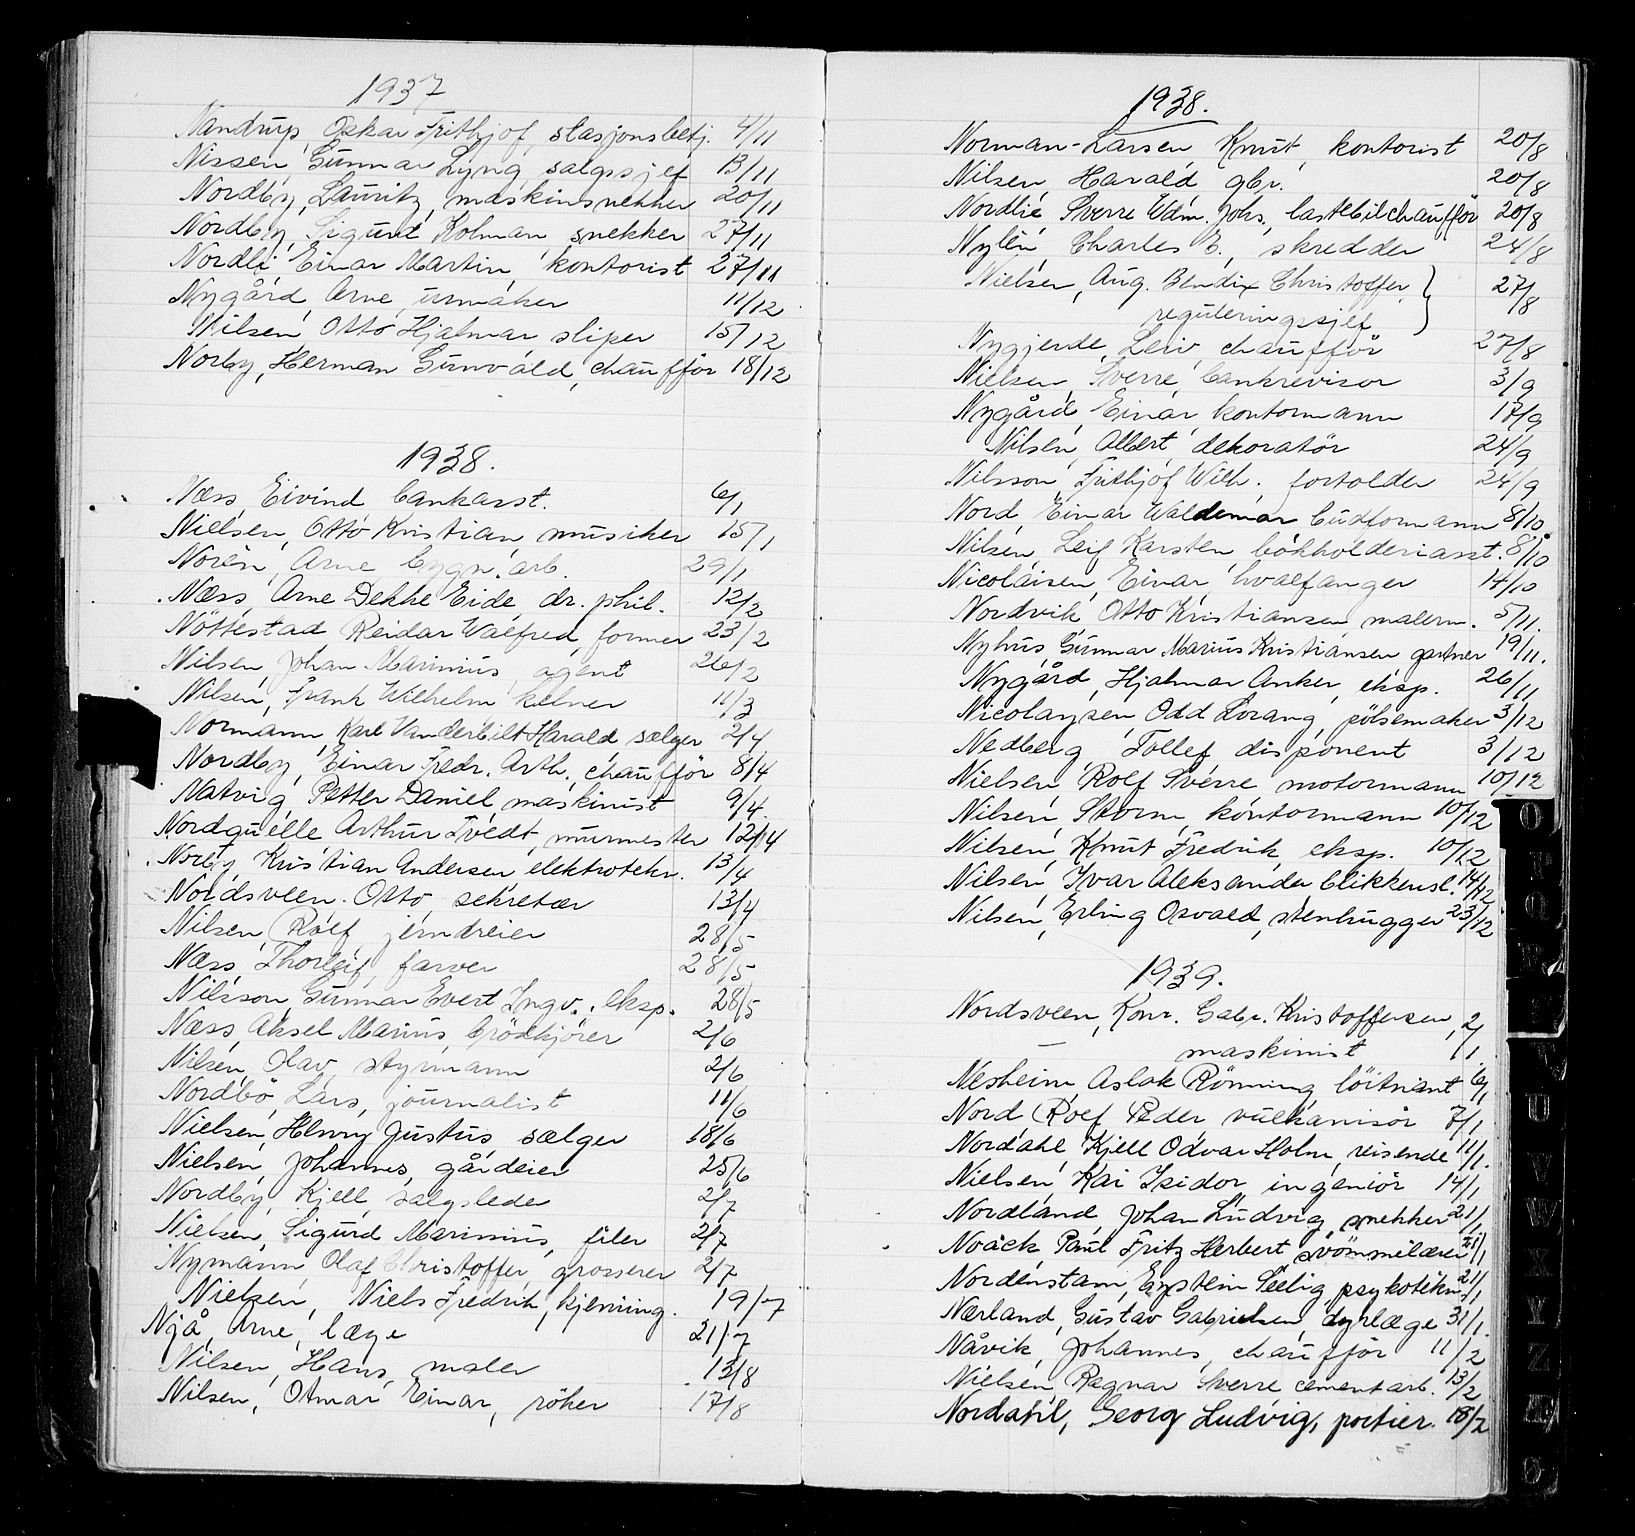 1937
Nandrup, Oskar Frithjof, stasjonsbetj. 4/11
Nissen, Gunnar Lyng, salgssjef 13/11
Nordby, Lauritz, maskinsnekker 20/11
Nordby, Sigurd Kolman, snekker 27/11
Nordli, Einar Martin, kontorist 27/11
Nygård, Arne, urmaker 11/12
Nilsen, Otto Hjalmar, sliper 15/12
Norby, Herman Gunvald, chaufför 18/12
1938.
Næss, Eivind, bankasst. 6/1
Nielsen, Otto Kristian, musiker 15/1
Norén, Arne, bygn. arb. 29/1
Næss, Arne Dekke Eide, dr. phil. 12/2
Nöttestad, Reidar Walfred, former 23/2
Nilsen, Johan Marinius, agent 26/2
Nilsen, Frank Wilhelm, kelner 11/3
Normann, Karl Vanderbilt Harald, sælger 2/4
Nordby, Einar Fredr. Arth., chauffør 8/4
Natvig, Petter Daniel, maskinist 9/4
Nordquelle, Arthur Tvedt, murmester 12/4
Norby, Kristian Andersen, elektrotekn. 13/4
Nordsveen, Otto, sekretær 13/4
Nilsen, Rolf, jerndreier 28/5
Næss, Thorleif, farver 28/5
Nilsson, Gunnar Evert Ingv., eksp. 28/5
Næss, Aksel Marius, brödkjörer 2/6
Nilsen, Olav, styrmann 2/6
Nordbö, Lars, journalist 11/6
Nielsen, Henry Justus, sælger 18/6
Nielsen, Johannes, gårdeier 25/6
Nordby, Kjell, salgsleder 2/7
Nielsen, Sigurd Marinius, filer 2/7
Nymann, Olaf Christoffer, grosserer 2/7
Nielsen, Niels Fredrik, kjemiing. 19/7
Njå, Arne, læge 21/7
Nilsen, Hans, maler 13/8
Nilsen, Otmar Einar, röker 17/8
1938.
Norman-Larsen, Knut, kontorist 20/8
Nilsen, Harald, gbr. 20/8
Nordlie, Sverre Wdm. Johs., lastebilchaufför 20/8
Nylén, Charles E., skredder 24/8
Nielsen, Aug. Bendix Christoffer, 27/8
reguleringssjef
Nygjerde, Leiv, chaufför 27/8
Nielsen, Sverre, bankrevisor 3/9
Nygård, Einar, kontormann 17/9
Nilsen, Albert, dekoratör 24/9
Nilsson, Frithjof Wilh., fortolder 24/9
Nord, Einar Waldemar, budformann 8/10
Nilsen, Leif Karsten, bokholderiasst. 8/10
Nicolaisen, Einar, hvalfanger 14/10
Nordvik, Otto Kristiansen, malerm. 5/11.
Nyhus, Gunnar Marius Kristiansen, gartner 19/11.
Nygård, Hjalmar Anker, eksp. 26/11
Nicolaysen, Odd Lorang, pölsemaker 3/12
Nedberg, Tollef, disponent 3/12
Nielsen, Rolf Sverre, motormann 10/12
Nilsen, Storm, kontormann 10/12
Nilsen, Knut Fredrik, eksp. 10/12
Nilsen, Ivar Aleksander, blikkensl. 14/12
Nilsen, Erling Osvald, stenhugger 23/12
1939.
Nordsveen, Konr. Gabr. Kristoffersen, 2/1
maskinist
Nesheim, Aslak Rönning, löitnant 6/1
Nord, Rolf Peder, vulkanisör 7/1
Nordahl, Kjell Odvar Holm, reisende 11/1.
Nielsen, Kai Isidor, ingeniör 14/1
Nordland, Johan Ludvig, snekker 21/1
Noack, Paul Fritz Herbert, svömmelærer 21/1
Nordenstam, Eystein Seelig, psykotekn. 21/1
Nærland, Gustav Gabrielsen, dyrlæge 31/1.
Nåvik, Johannes, chauffør 11/2
Nielsen, Ragnar Sverre, cementarb. 13/2
Nordahl, Georg Ludvig, portier. 18/2
O
P
Q
R
U
V
W
X
Y
Z
Æ
Ö